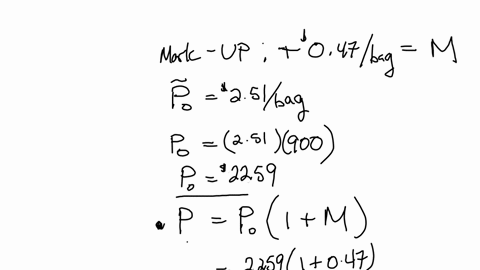 Mark-UP; +$0.47/bag = M
P̃₀ = $2.51/bag
P₀ = (2.51)(900)
P₀ = $2259
• P = P₀(1+M)
= 2259(1+0.47)